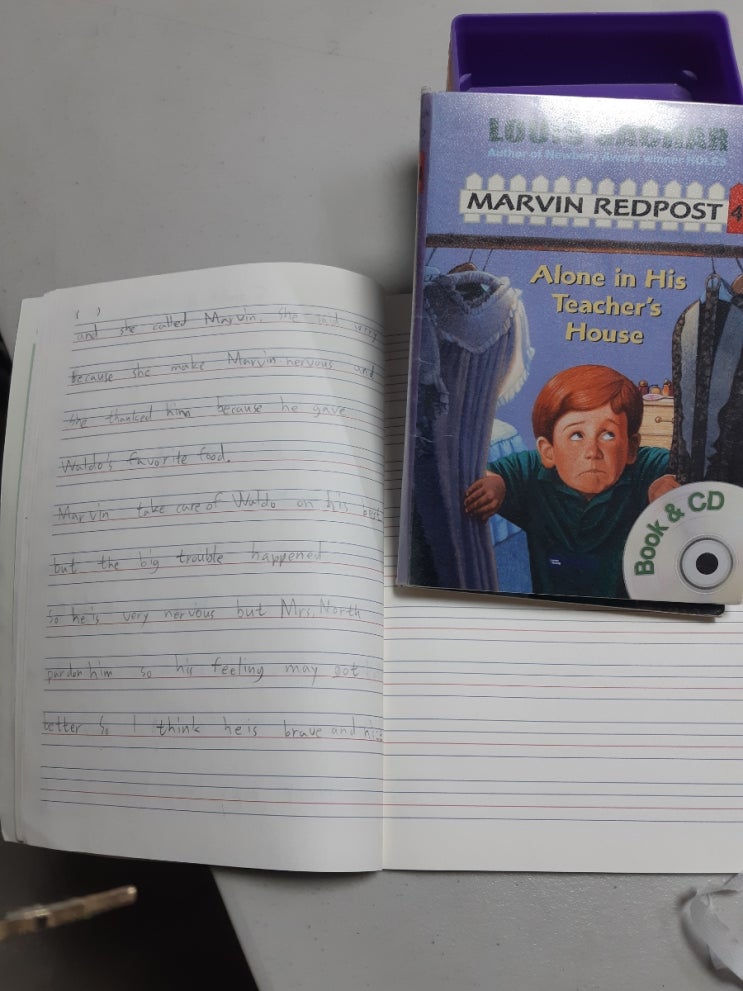 LOUIS SACHAR
Author of Newbery Award winner HOLES
MARVIN REDPOST
4
Alone in His
Teacher's
House
Book & CD
( )
and she called Marvin. She
because she make Marvin nervous and
she thanked him because he gave
Waldo's favorite food.
Marvin take care of Waldo on his best
but the big trouble happened
so he is very nervous but Mrs. North
pardon him so his feeling may got
better So I think he is brave and